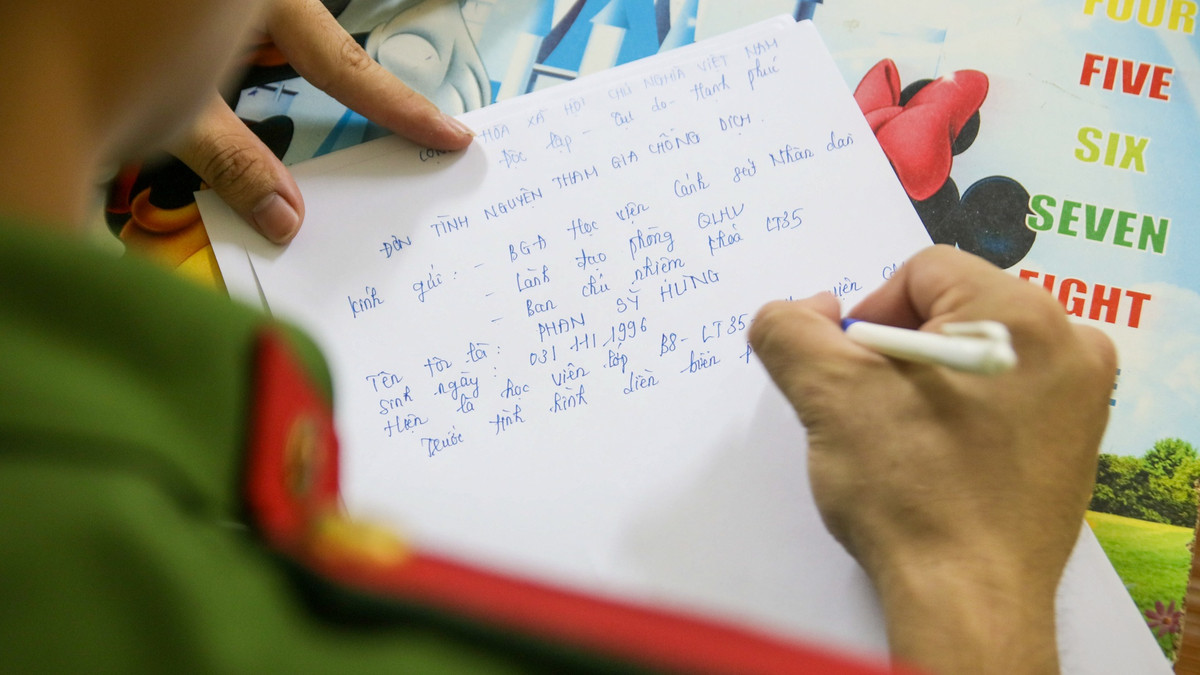 CỘNG HÒA XÃ HỘI CHỦ NGHĨA VIỆT NAM
Độc lập - Tự do - Hạnh phúc
ĐƠN TÌNH NGUYỆN THAM GIA CHỐNG DỊCH.
Kính gửi: - BGĐ Học viện Cảnh sát Nhân dân
- Lãnh đạo phòng QLHV
- Ban chủ nhiệm khoá LT35
Tên tôi là: PHAN SỸ HÙNG
Sinh ngày: 03/11/1996
Hiện là học viên lớp B8- LT35- viện
Trước tình hình diễn biến
FOUR
FIVE
SIX
SEVEN
EIGHT